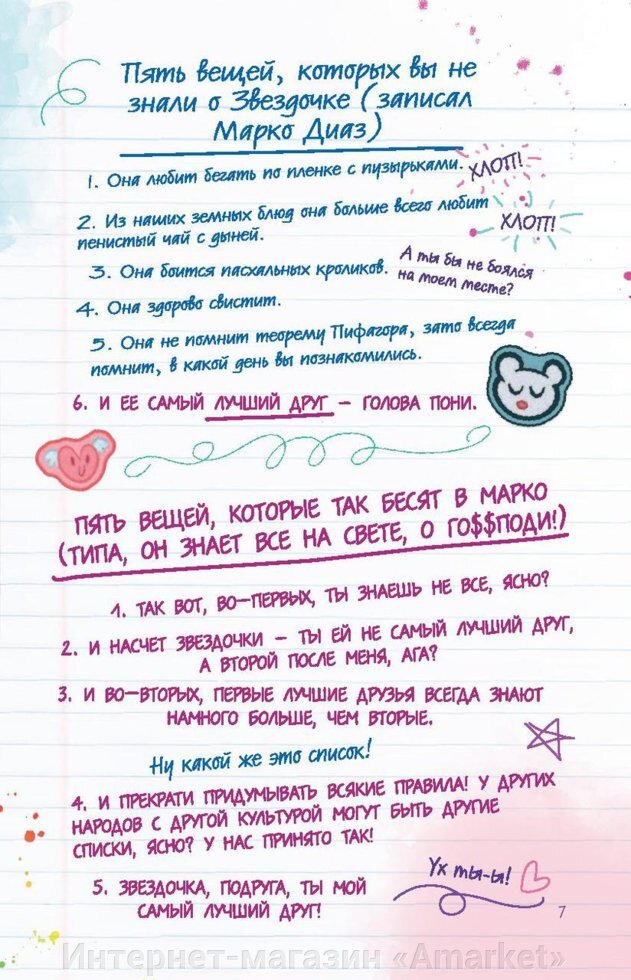 Пять вещей, которых вы не
знали о Звездочке (записал
Марко Диаз)
1. Она любит бегать по пленке с пузырьками.
ХЛОП!
2. Из наших земных блюд она больше всего любит
пенистый чай с дыней.
ХЛОП!
3. Она боится пасхальных кроликов.
А ты бы не боялся
на моем месте?
4. Она здорово свистит.
5. Она не помнит теорему Пифагора, зато всегда
помнит, в какой день вы познакомились.
6. И ЕЕ САМЫЙ ЛУЧШИЙ ДРУГ – ГОЛОВА ПОНИ.
ПЯТЬ ВЕЩЕЙ, КОТОРЫЕ ТАК БЕСЯТ В МАРКО
(ТИПА, ОН ЗНАЕТ ВСЕ НА СВЕТЕ, О ГО$$ПОДИ!)
1. ТАК ВОТ, ВО-ПЕРВЫХ, ТЫ ЗНАЕШЬ НЕ ВСЕ, ЯСНО?
2. И НАСЧЕТ ЗВЕЗДОЧКИ – ТЫ ЕЙ НЕ САМЫЙ ЛУЧШИЙ ДРУГ,
А ВТОРОЙ ПОСЛЕ МЕНЯ, АГА?
3. И ВО-ВТОРЫХ, ПЕРВЫЕ ЛУЧШИЕ ДРУЗЬЯ ВСЕГДА ЗНАЮТ
НАМНОГО БОЛЬШЕ, ЧЕМ ВТОРЫЕ.
Ну какой же это список!
4. И ПРЕКРАТИ ПРИДУМЫВАТЬ ВСЯКИЕ ПРАВИЛА! У ДРУГИХ
НАРОДОВ С ДРУГОЙ КУЛЬТУРОЙ МОГУТ БЫТЬ ДРУГИЕ
СПИСКИ, ЯСНО? У НАС ПРИНЯТО ТАК!
Ух ты-ы!
5. ЗВЕЗДОЧКА, ПОДРУГА, ТЫ МОЙ
САМЫЙ ЛУЧШИЙ ДРУГ!
7
Интернет-магазин «Amarket»